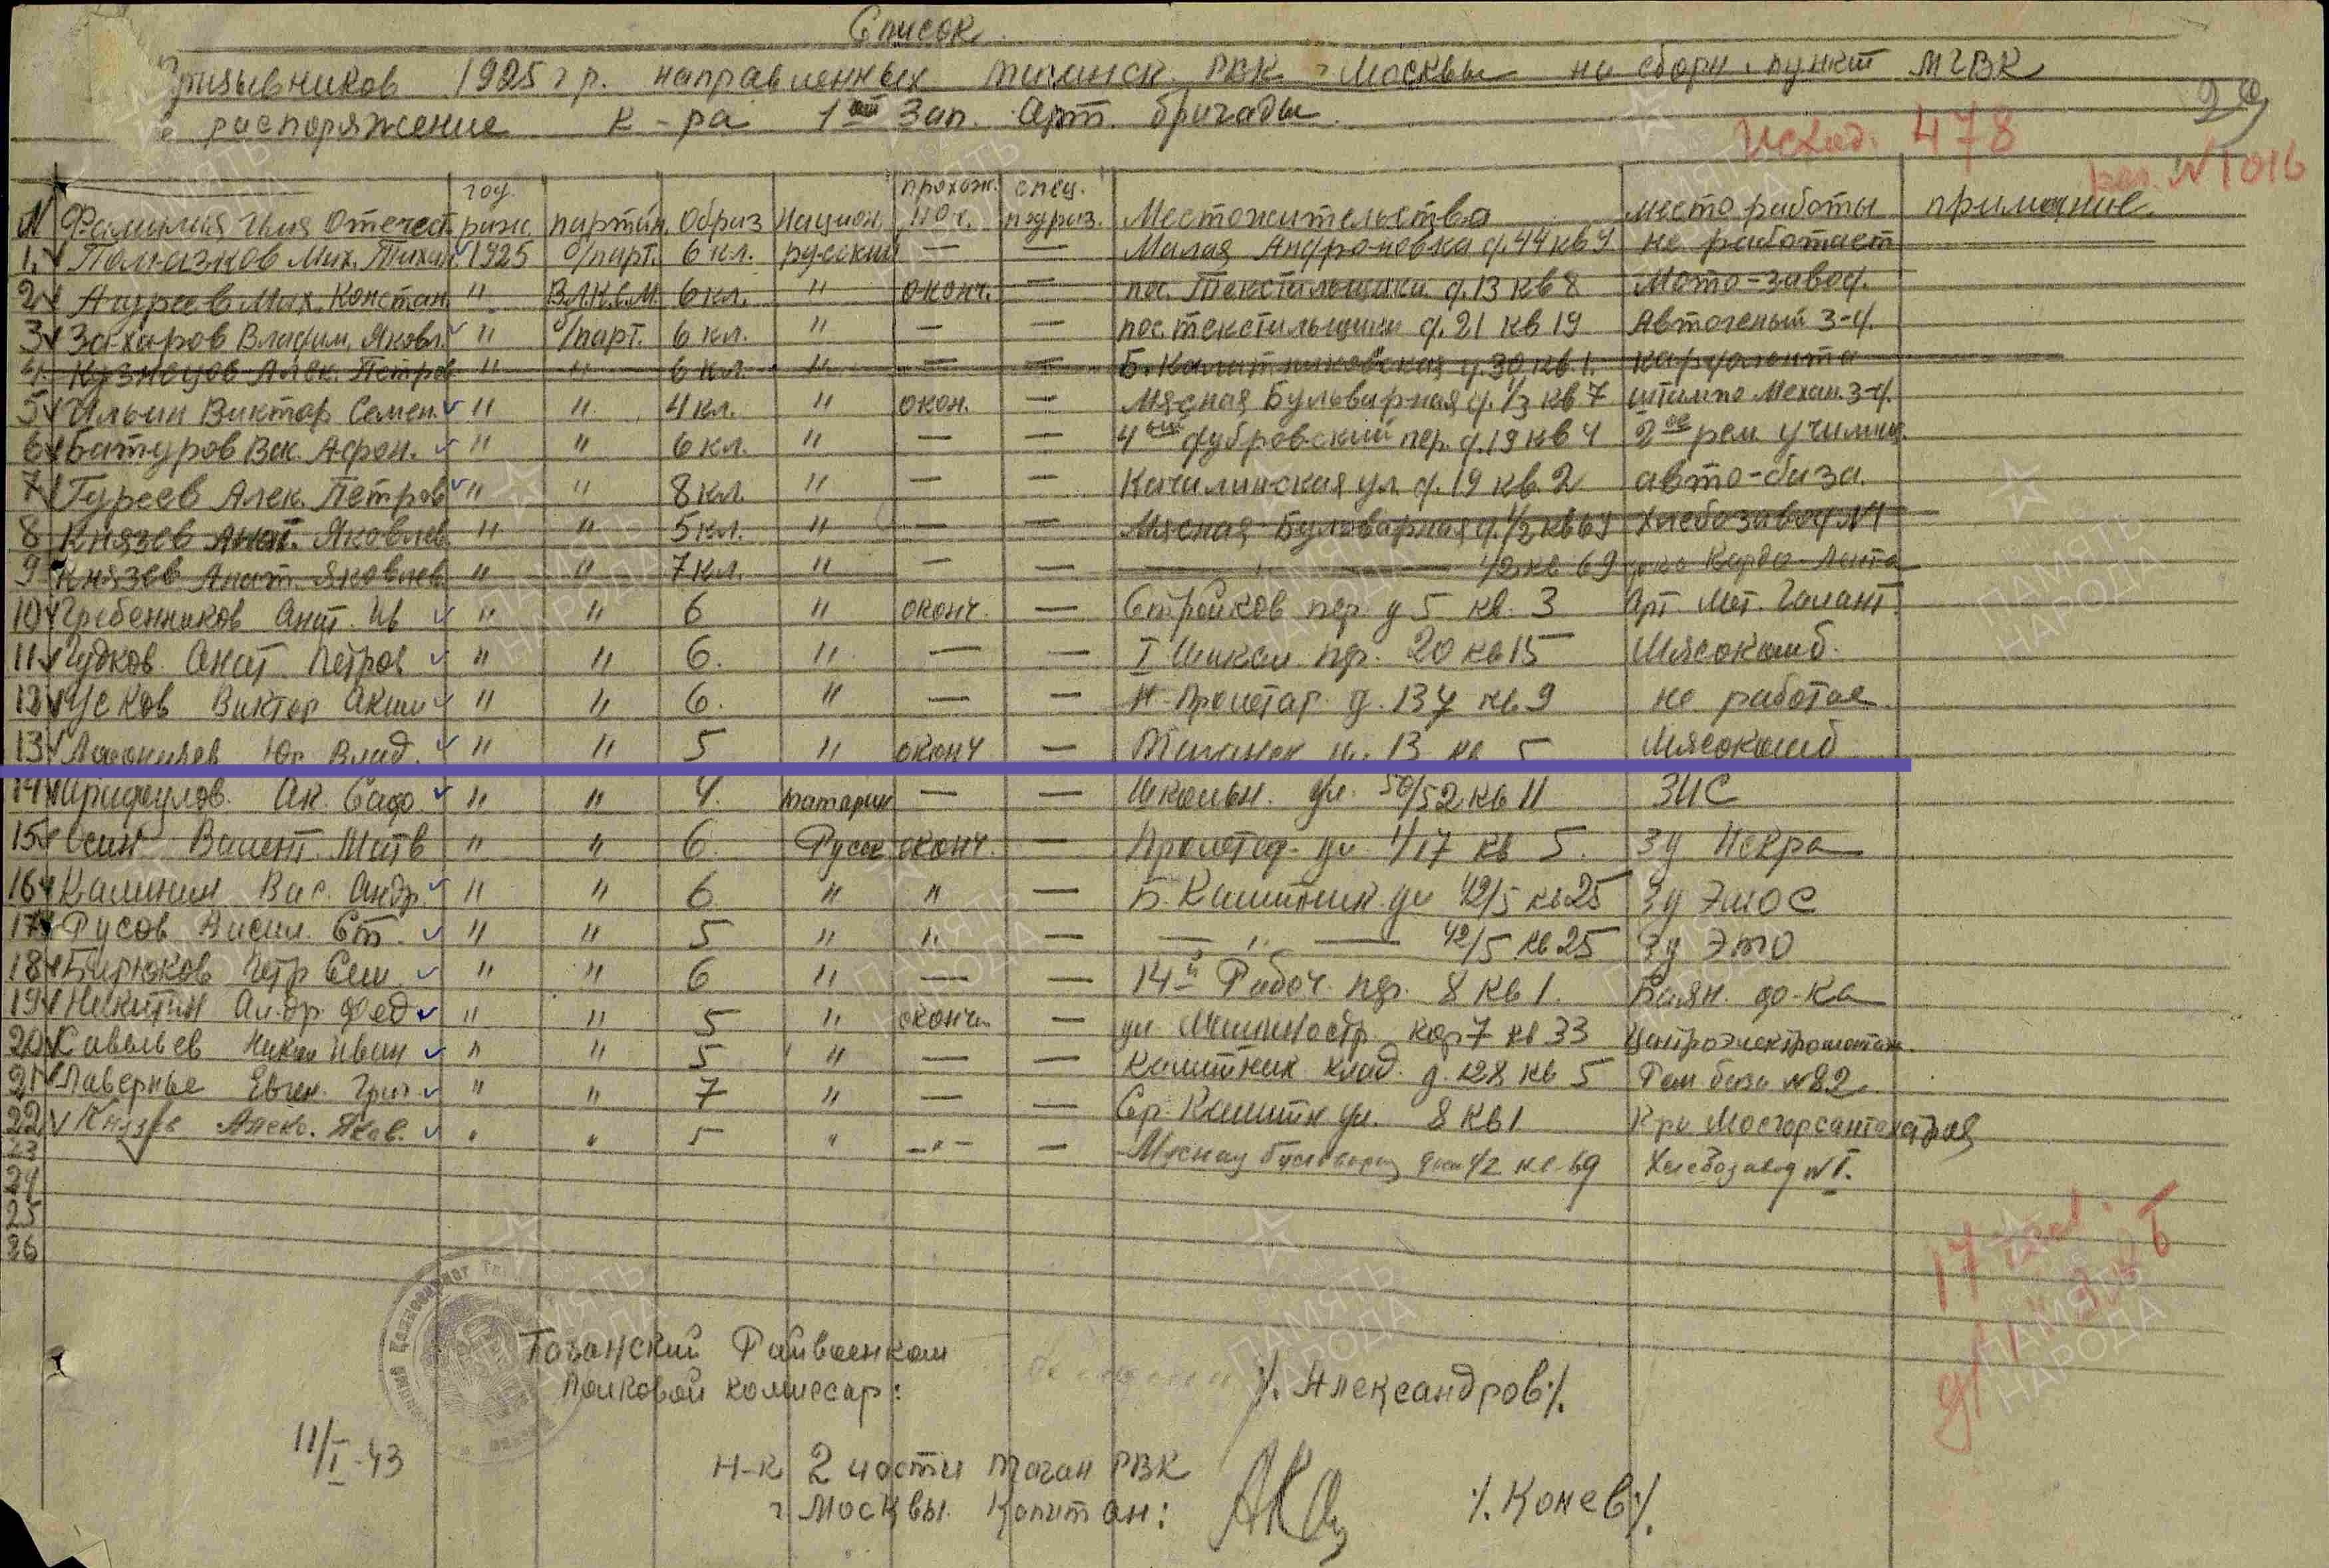 Список
Призывников 1925 г р. направленных Таганск. РВК г Москвы на сборн. пункт МГВК
в распоряжение к-ра 1ой Зап. Арт. бригады.
29
Исход. 478
N 1016
N Фамилия Имя Отечест. год рожд. партийн. Образ Национ. прохож. спец. подраз. Местожительство место работы примечание
1. Мих. Тихон. 1925 б/парт. 6 кл. русский — — Малая Андроновка д. 44 кв 9 не работает
2 Мих. Констан. " В.Л.К.С.М. 6 кл. " оконч. — пос. Текстильщики д. 13 кв 8 Мото-завод.
3 Захаров Владим. Яковл. " б/парт. 6 кл. " — — пос. текстильщики д. 21 кв 19 Автогеный з-д.
4 Кузнецов Алек. Петров " " 6 кл. " — — Б. Калитниковская д. 30 кв. 1. кардолента
5 Ильин Виктор Семен. " " 4 кл. " окон. — Мясная Бульварная д. 1/3 кв 7 штампо Механ. з-д.
6 Батуров Вик. Афон. " " 6 кл. " — — 4ый дубровский пер. д. 19 кв 4 2ое рем. училищ.
7 Гуреев Алек. Петров " " 8 кл. " — — ул. д. 19 кв. 2 авто-база.
8 Князев Яковлев " " 5 кл. " — — Мясная Бульварная д. 1/2 кв 69 Хлебозавод N 1
9 Князев Анат. Яковлев " " 7 кл. " — — — " — 1/2 кв 69 Кардо-Лента
10 Гребенников Анат. Ив " " 6 " оконч. — Стройков пер. д 5 кв. 3 Арт. Мет. Галант.
11 Анат Петров " " 6. " — — I пр. 20 кв 15 Мясокомб.
12 Усков Виктор Аким " " 6. " — — Н-Пролетар. д. кв 9 не работае
13 Юр. Влад. " " 5 " оконч — Таганск ул. 13 кв 5 Мясокомб
14 Ак. Сафо. " " 4. татарин — — Школьн. ул. 50/52 кв 11 ЗИС
15 Осин Валент. Матв " " 6. Русск оконч. — Пролетар. ул. 1/17 кв 5. зд Искра
16 Калинин Вас. Андр. " " 6 " " — Б. Калитник. ул 42/5 кв 25 зд
17 Русов Васил. Ст. " " 5 " " — — " — 42/5 кв 25 зд
18 Бирюков Петр Сем. " " 6 " — — 14й Рабоч. пр. 8 кв 1. Баян. ф-ка
19 Никитин Ал-др. Фед " " 5 " оконч. — ул Машиностр. кор 7 кв 33 Центроэлектромонтаж.
20 Савельев Никол Иван " " 5 " — — Калитник клад. д. 128 кв 5 Рем база N 82.
21 Лаверные Евген. Григ " " 7 " — — Ср. Калитн ул. 8 кв 1
22 Князев Алекс. Яков. " " 5 " — " — — Мясная бульварная дом 1/2 кв 69 Хлебозавод N I.
23
24
25
26
17 чел.
Таганский Райвоенком
Полковой комиссар: /. Александров./.
11/I-43
Н-к 2 части таган РВК
г Москвы. Капитан: /. Конев./.
ПАМЯТЬ НАРОДА